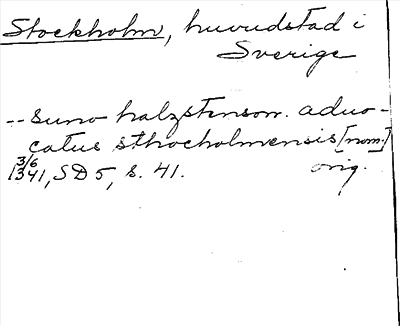 Stockholm, huvudstad i
Sverige
-- suno halzstenson. aduo-
catus sthocholmensis [nom.]
3/6
1341, SD 5, s. 41. orig.